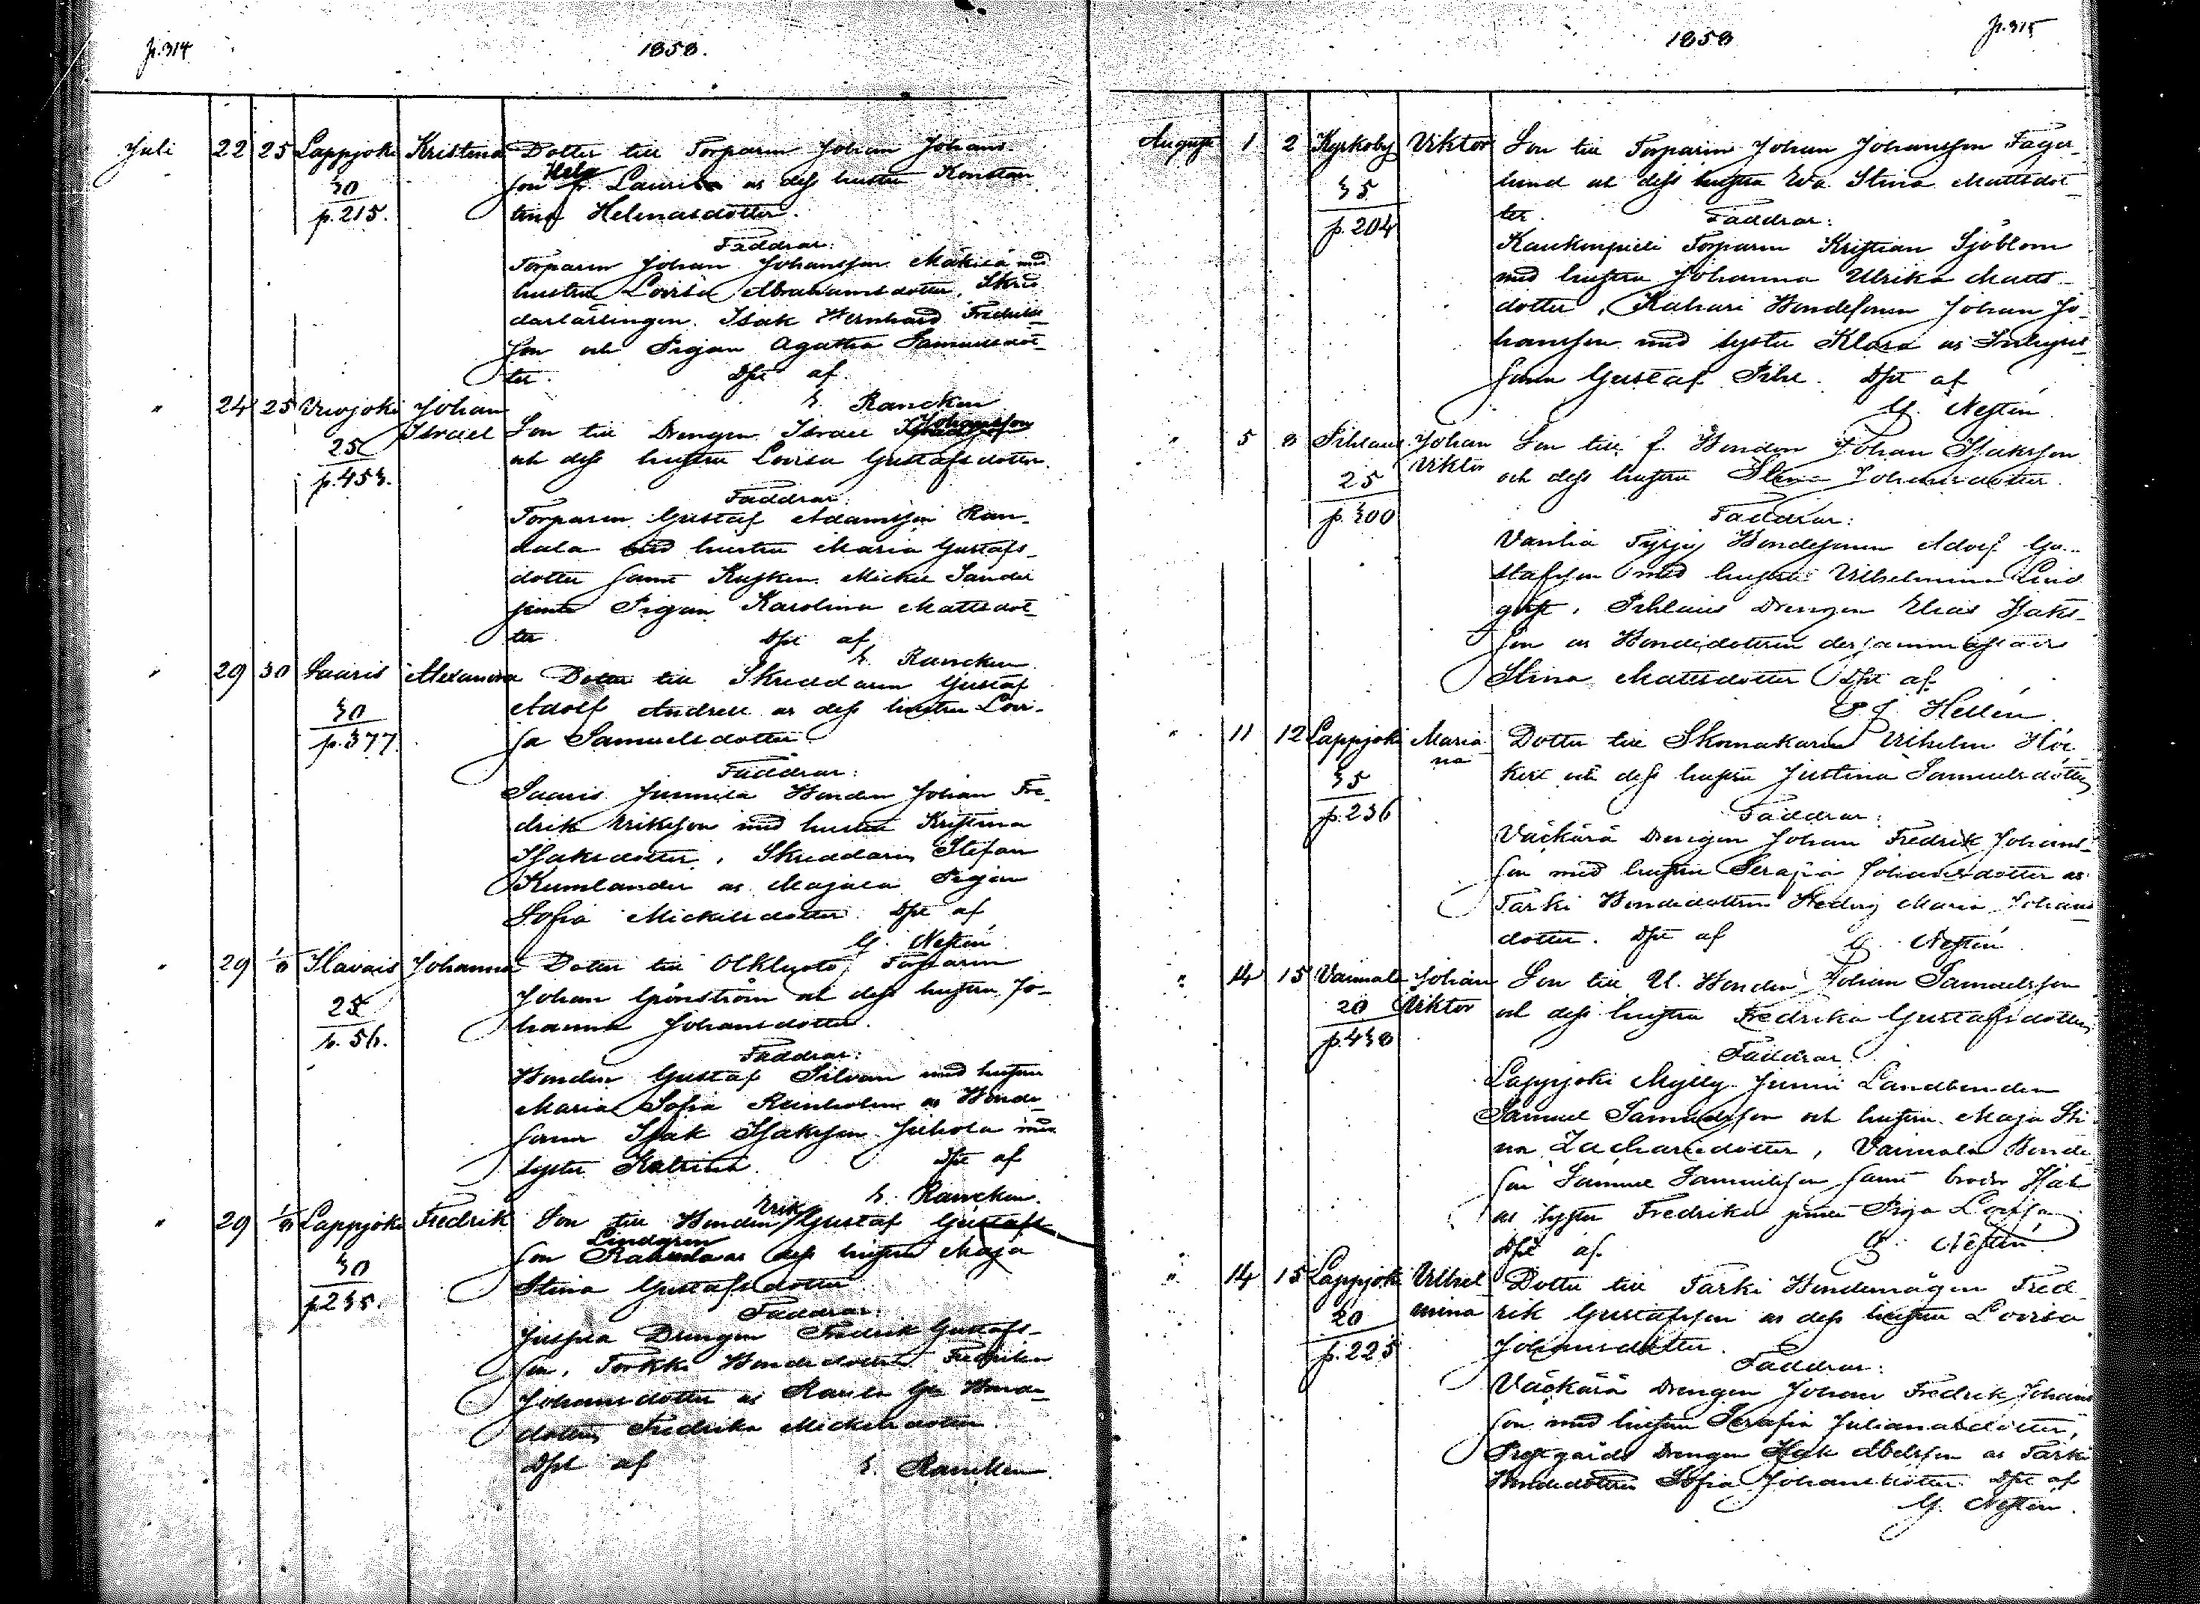 p. 314
1858.
Juli 22 25 Lappjoki Kristina Dotter till Torparen Johan Johans-
30 son Help Lauri as dess hustru Konstan
p. 215. tina Helenasdotter.
Faddrar:
Torparen Johan Johansson Mäkilä med
hustru Lovisa Abrahamsdotter, Skräd
darlärlingen Isak Wernhard Fredriks
son och Pigan Agatha Samuelsdot
ter. Dpt af
E. Rancken
" 24 25 Irwjoki Johan
Israel Son till Drengen Israel Johansson
25 och dess hustru Lovisa Gustafsdotter.
p. 453.
Faddrar
Torparen Gustaf Adamsson Ran-
dala med hustru Maria Gustafs-
dotter samt Kusken Mickel Sander
jemte Pigan Karolina Mattsdot
ter Dpt af
E. Rancken
" 29 30 Saaris Alexandra Dotter till Skreddaren Gustaf
30 Adolf Andrell as dess hustru Lovi-
p. 377. sa Samuelsdotter
Faddrar:
Saaris Junnila Bonden Johan Fre-
drik Eriksson med hustru Kristina
Isaksdotter, Skreddaren Stefan
Kumlander as Majala Pigan
Sofia Mickelsdotter. Dpt af
G. Nestén
" 29 1/8 Ilavais Johanna Dotter till Olkluoto Torparen
25 Johan Grönström och dess hustru Jo-
p. 56. hanna Johansdotter.
Faddrar:
Bonden Gustaf Silvan med hustru
Maria Sofia Reinholm as Bonde
sonen Isak Isaksson Juhola med
syster Katrina. Dpt af
E. Rancken.
" 29 1/8 Lappjoki Fredrik Son till Bonden Erik Gustaf Gustafs
30 son Lindgren as dess hustru Maja
p. 235. Stina Gustafsdotter
Faddrar:
Drengen Fredrik Gustafs-
son, Torkki Bondedottren Fredrika
Johansdotter as Bonde
dottren Fredrika Mickelsdotter
Dpt af E. Rancken
1858
p. 315
August 1 2 Kyrkoby Viktor Son till Torparen Johan Johansson Fager-
35 lund och dess hustru Eva Stina Mattsdot
p. 204 ter. Faddrar:
Kaukenpieli Torparen Kristian Sjöblom
med hustru Johanna Ulrika Matts-
dotter, Kahari Bondesonen Johan Jo-
hansson med syster Klara as Inhyses
Gustaf Pihl. Dpt af
G. Nestén
" 5 8 Pihlaus Johan Son till f. Bonden Johan Isaksson
25 Viktor och dess hustru Stina Johansdotter.
p. 300 Faddrar:
Vanha Tyrjy Bondesonen Adolf Gu-
stafsson med hustru Vilhelmina Lind
qvist, Pihlaus Drengen Elias Isaks-
son as Bondedottren dersammastädes
Stina Mattsdotter Dpt af
Hellén.
" 11 12 Lappjoki Maria Dotter till Skomakaren Vilhelm Höc
35 na kert och dess hustru Justina Samuelsdotter
p. 236 Faddrar:
Väckärä Drengen Johan Fredrik Johans-
son med hustru Serafia Johansdotter as
Tarki Bondedottren Hedvig Maria Johans
dotter. Dpt af G. Nestén
" 14 15 Vaimala Johan Son till U. Bonden Johan Samuelsson
20 Viktor och dess hustru Fredrika Gustafsdotter,
p. 430 Faddrar:
Lappjoki Mylly Junni Landbonden
Samuel Samuelsson och hustru Maja Sti
na Zachariedotter, Vaimala Bonde
son Samuel Samuelsson samt broder Isak
as syster Fredrika jemte Piga Lovisa
Dpt af G. Nestén
" 14 15 Lappjoki Vilhel Dotter till Tarki Bondemågen Fred
20 mina rik Gustafsson as dess hustru Lovisa
p. 225 Johansdotter.
Faddrar:
Väckärä Drengen Johan Fredrik Johans
son med hustru Serafia Julianasdotter,
Prestgårds Drengen Isak Abelsson as Tarki
Bondedottren Sofia Johansdotter Dpt af
G. Nestén.